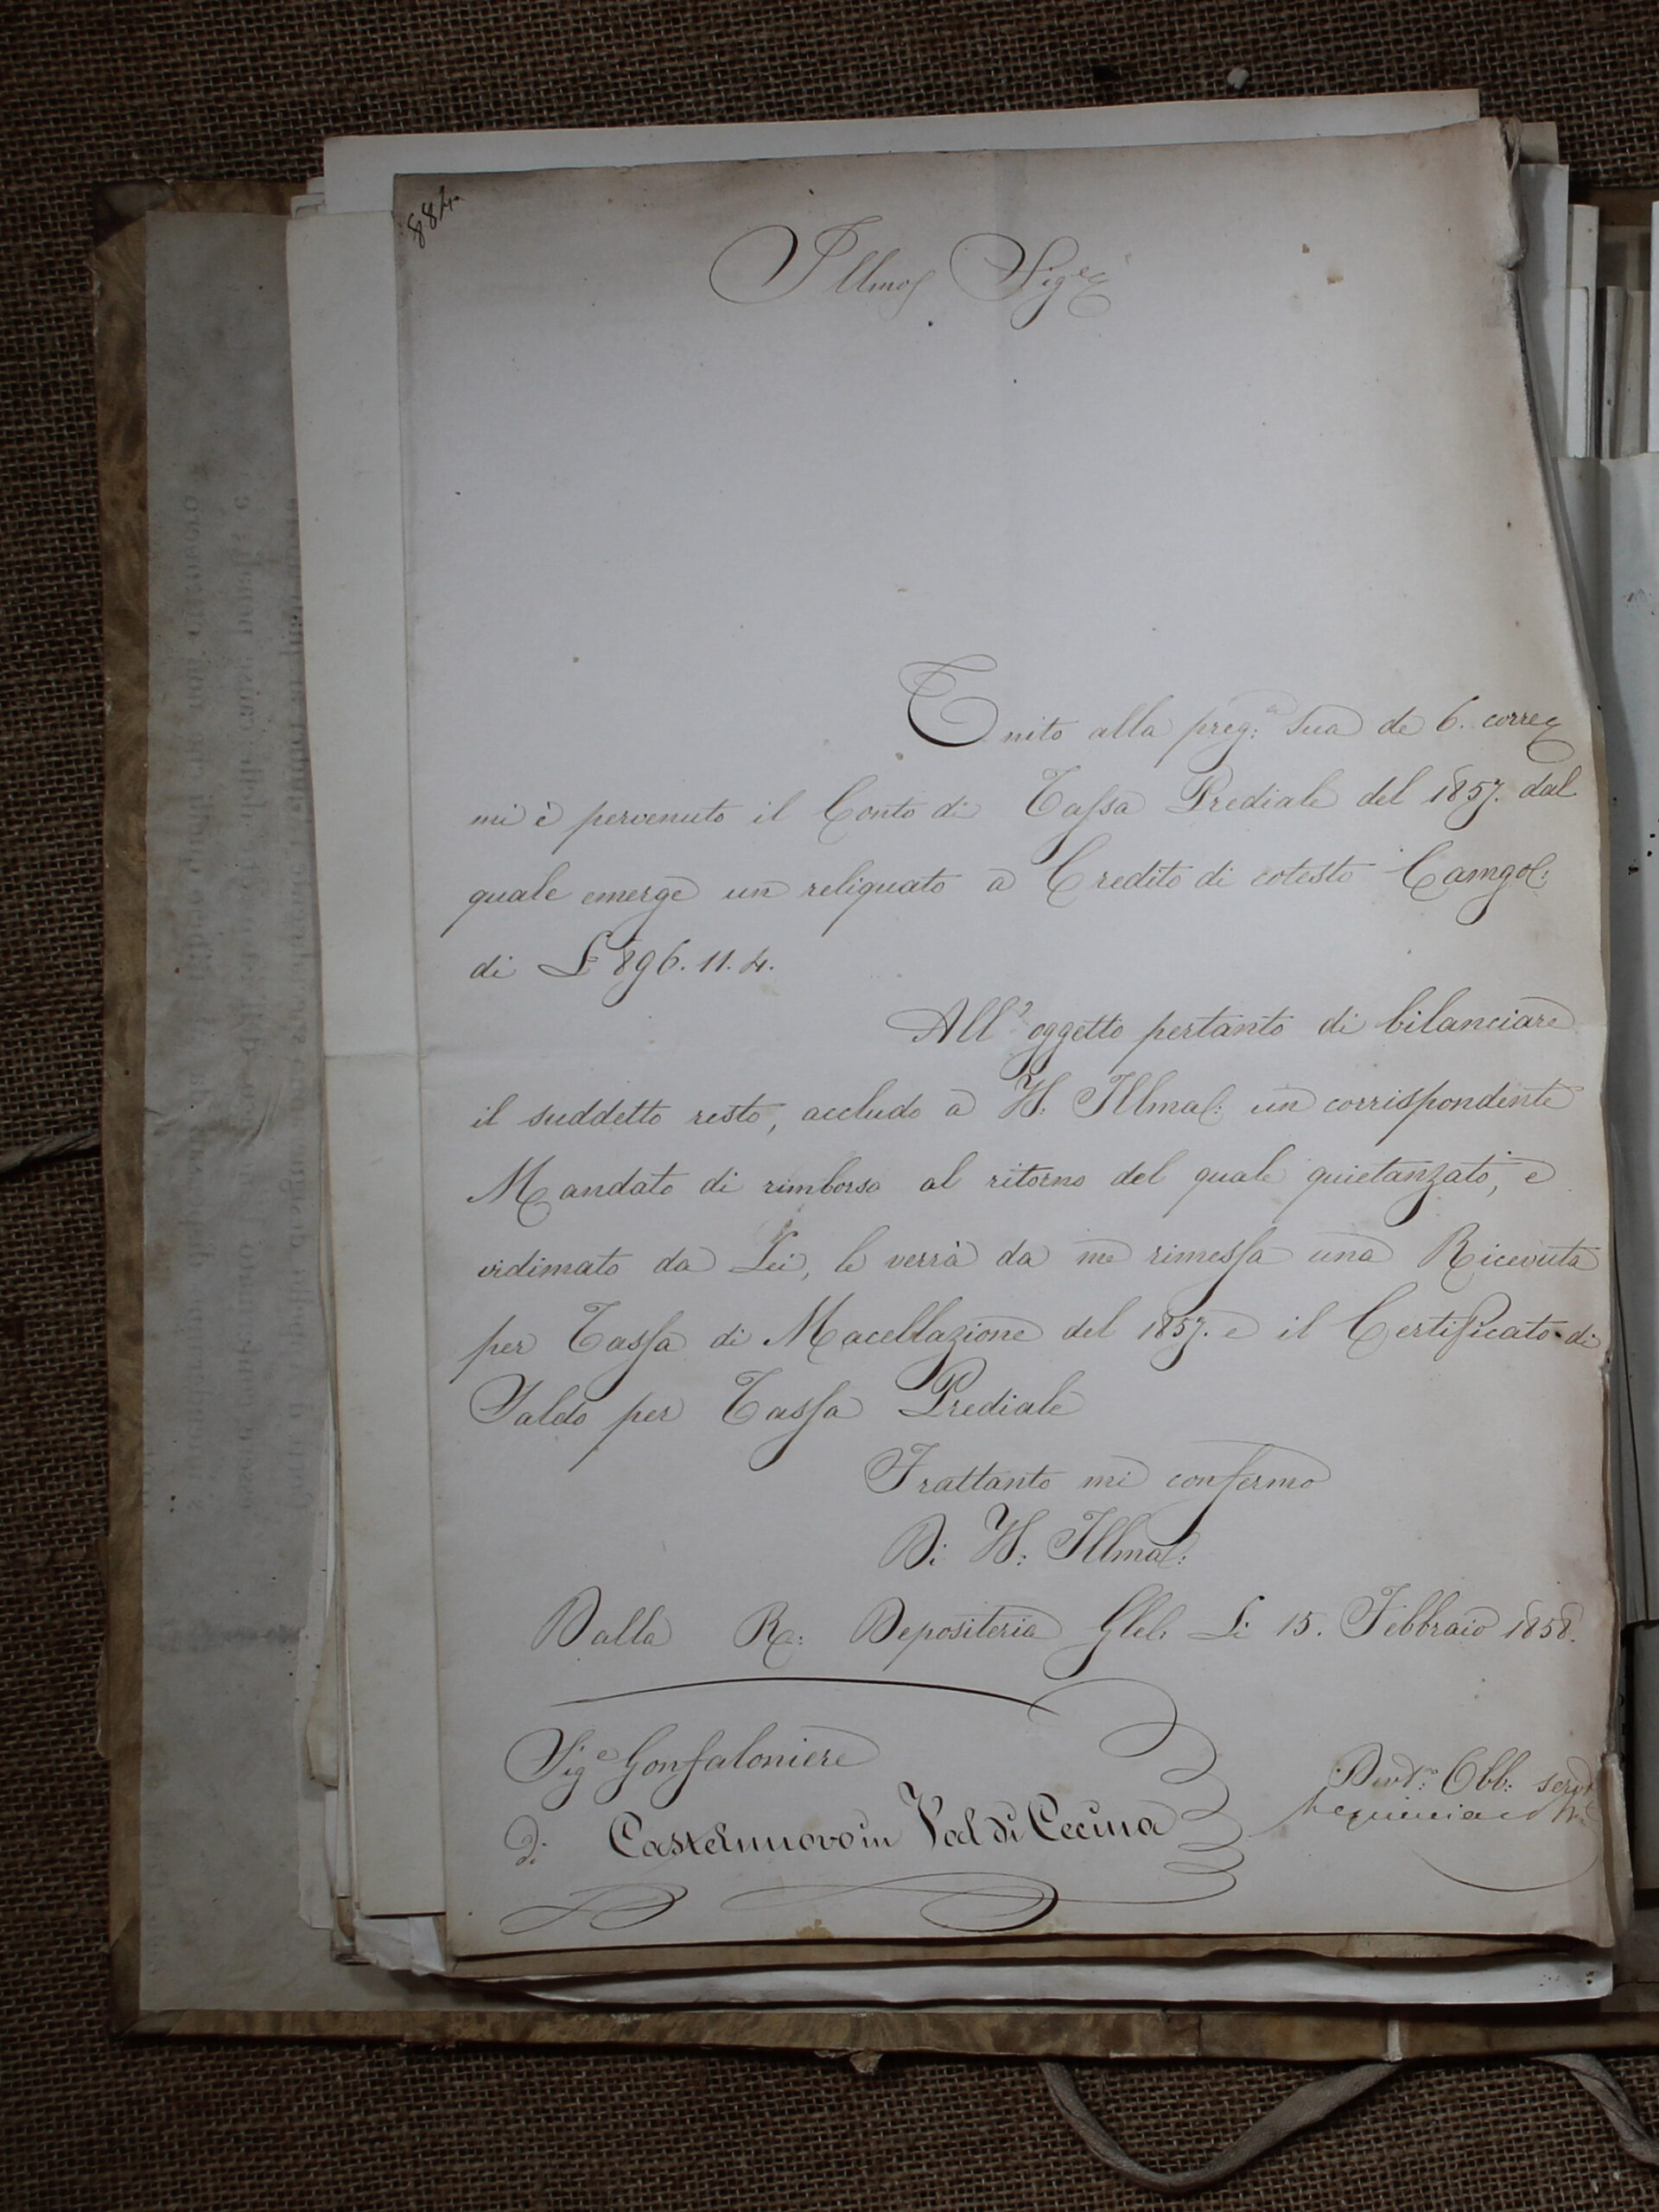 884.
Illmo Sigre
Unito alla preg: Sua de 6. corre
mi è pervenuto il Conto di Tassa Prediale del 1857. dal
quale emerge un reliquato a Credito di cotesto
di £ 896. 11. 4.
All' oggetto pertanto di bilanciare
il suddetto resto, accludo a VS: Illma: un corrispondente
Mandato di rimborso al ritorno del quale quietanzato, e
vidimato da Lei, le verrà da me rimessa una Ricevuta
per Tassa di Macellazione del 1857. e il Certificato di
Saldo per Tassa Prediale
Frattanto mi confermo
Di VS: Illma:
Dalla R: Depositeria Gle: Li 15. Febbraio 1858.
Sige Gonfaloniere
di Castelnuovo in Val di Cecina
Devo: Obb: serv